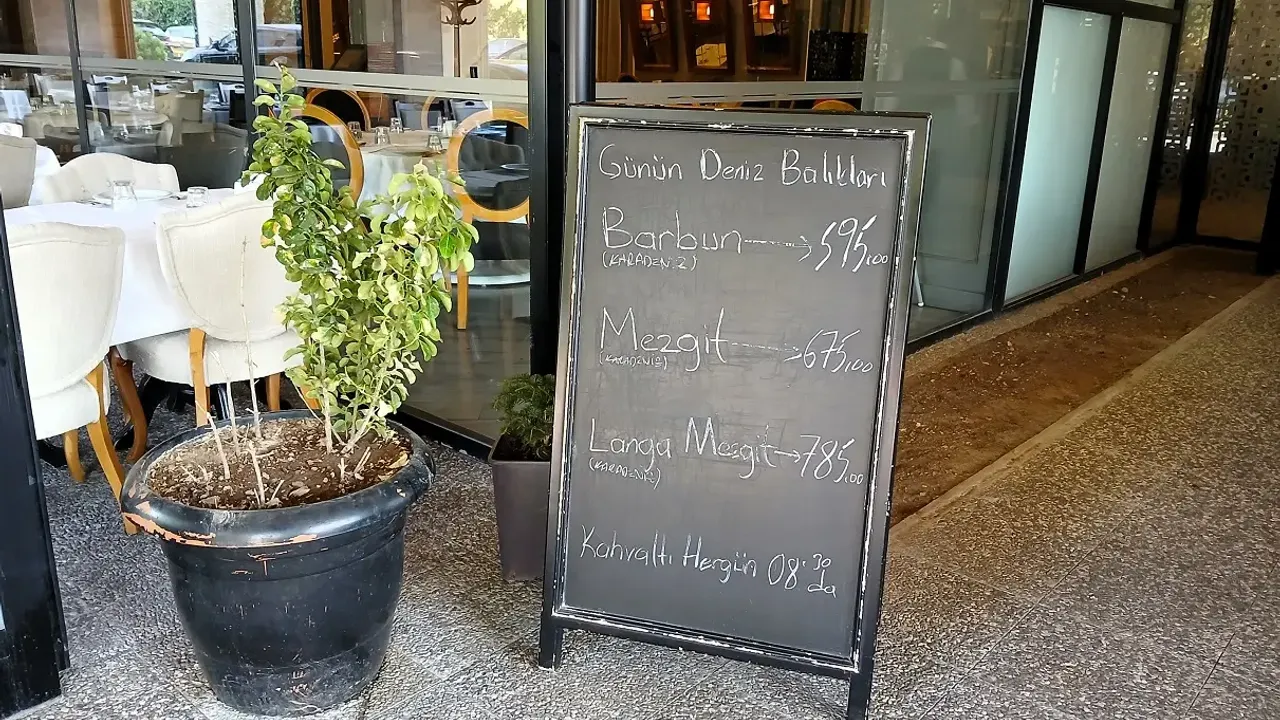 Günün Deniz Balıkları
Barbun 595,00
(KARADENİZ)
Mezgit 675,00
(KARADENİZ)
Langa Mezgit 785,00
(KARADENİZ)
Kahvaltı Hergün 08:30 da